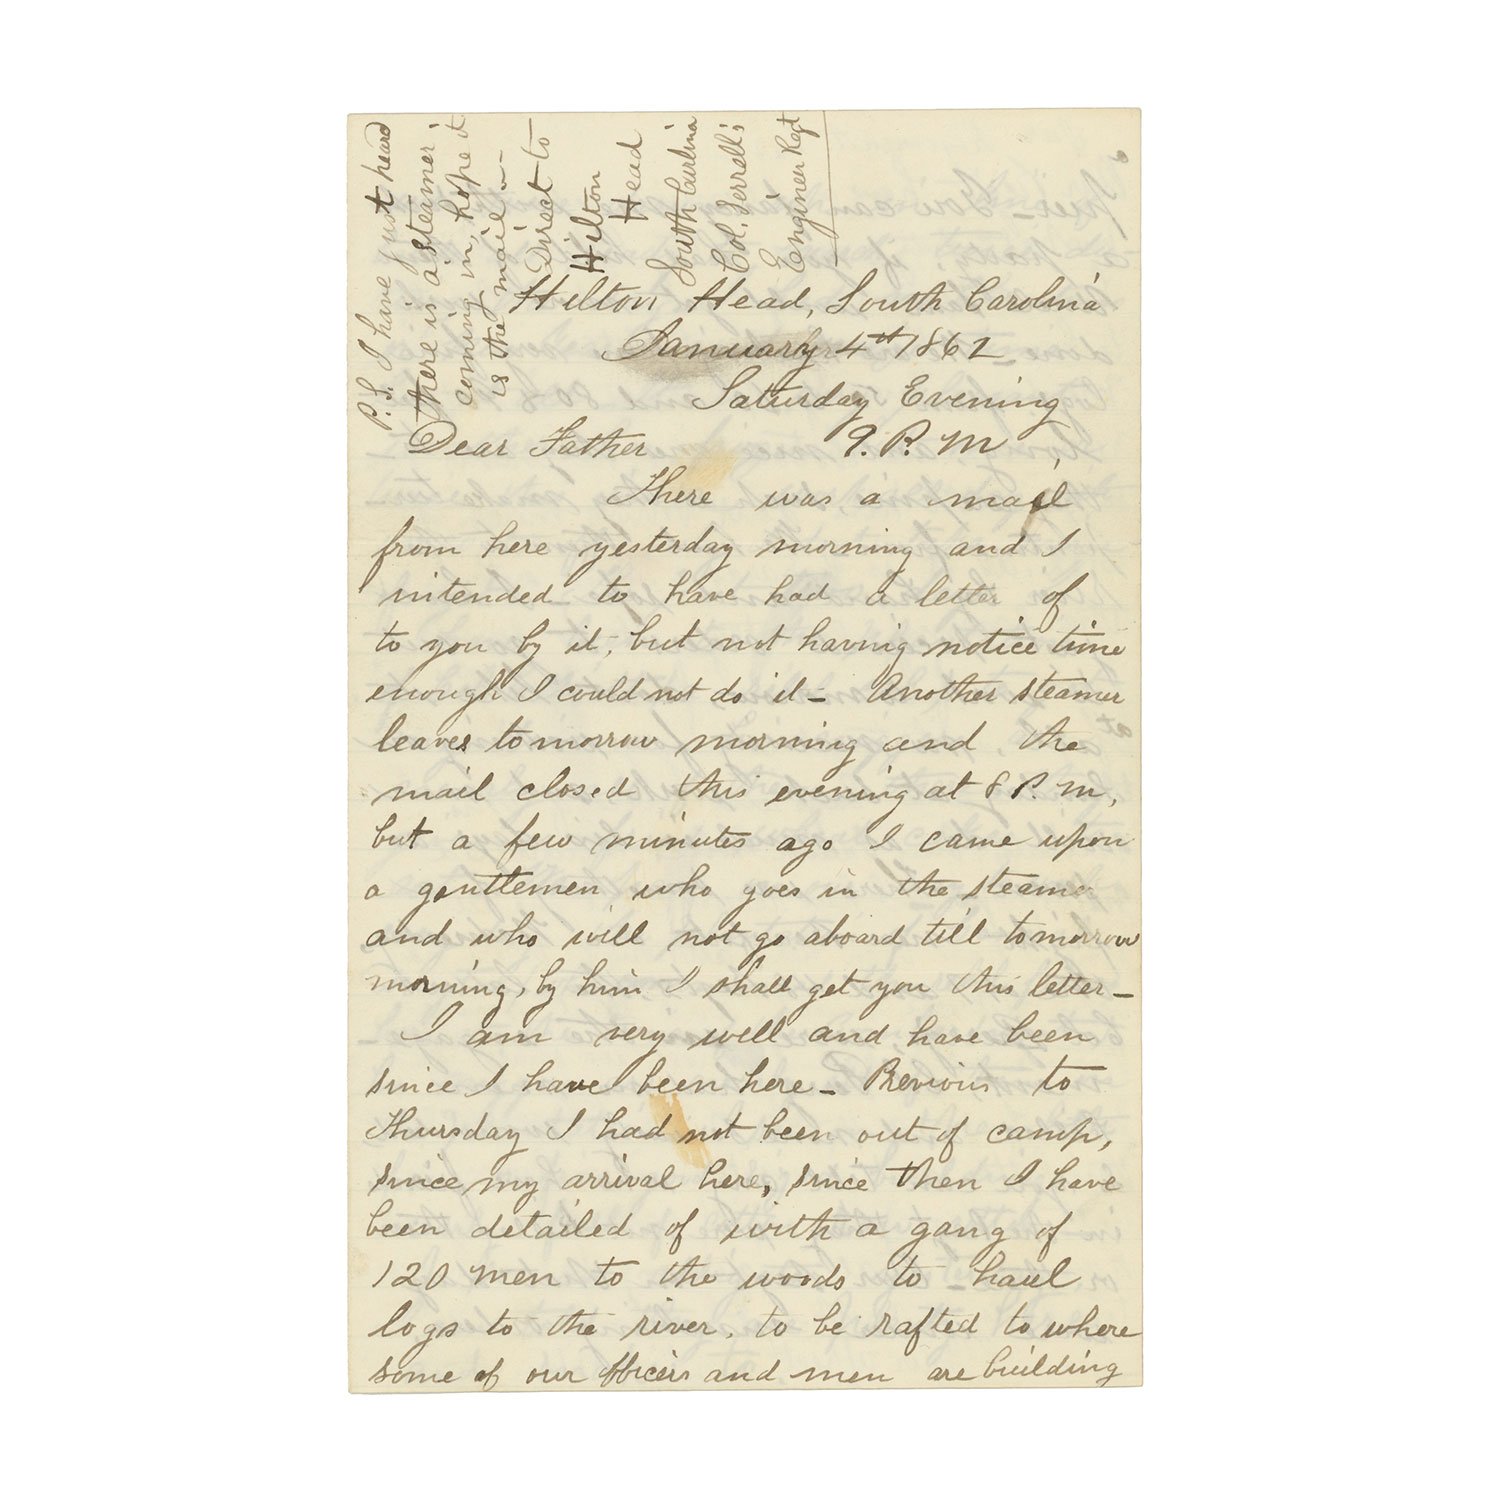 P.S. I have just heard
there is a steamer
coming in, hope it
is the mail —
Direct to
Hilton
Head
South Carlina
Col. Serrell's
Engineer Regt
Hilton Head, South Carolina
January 4th 1862
Saturday Evening
Dear Father 9. P. M
There was a mail
from here yesterday morning and I
intended to have had a letter of
to you by it, but not having notice time
enough I could not do it — Another steamer
leaves tomorrow morning and the
mail closed this evening at 8 P. M,
but a few minutes ago I came upon
a gentlemen who goes in the steame
and who will not go aboard till tomorrow
morning, by him I shall get you this letter —
I am very well and have been
since I have been here — Previous to
Thursday I had not been out of camp,
since my arrival here, since then I have
been detailed of with a gang of
120 men to the woods to haul
logs to the river, to be rafted to where
some of our officers and men are building